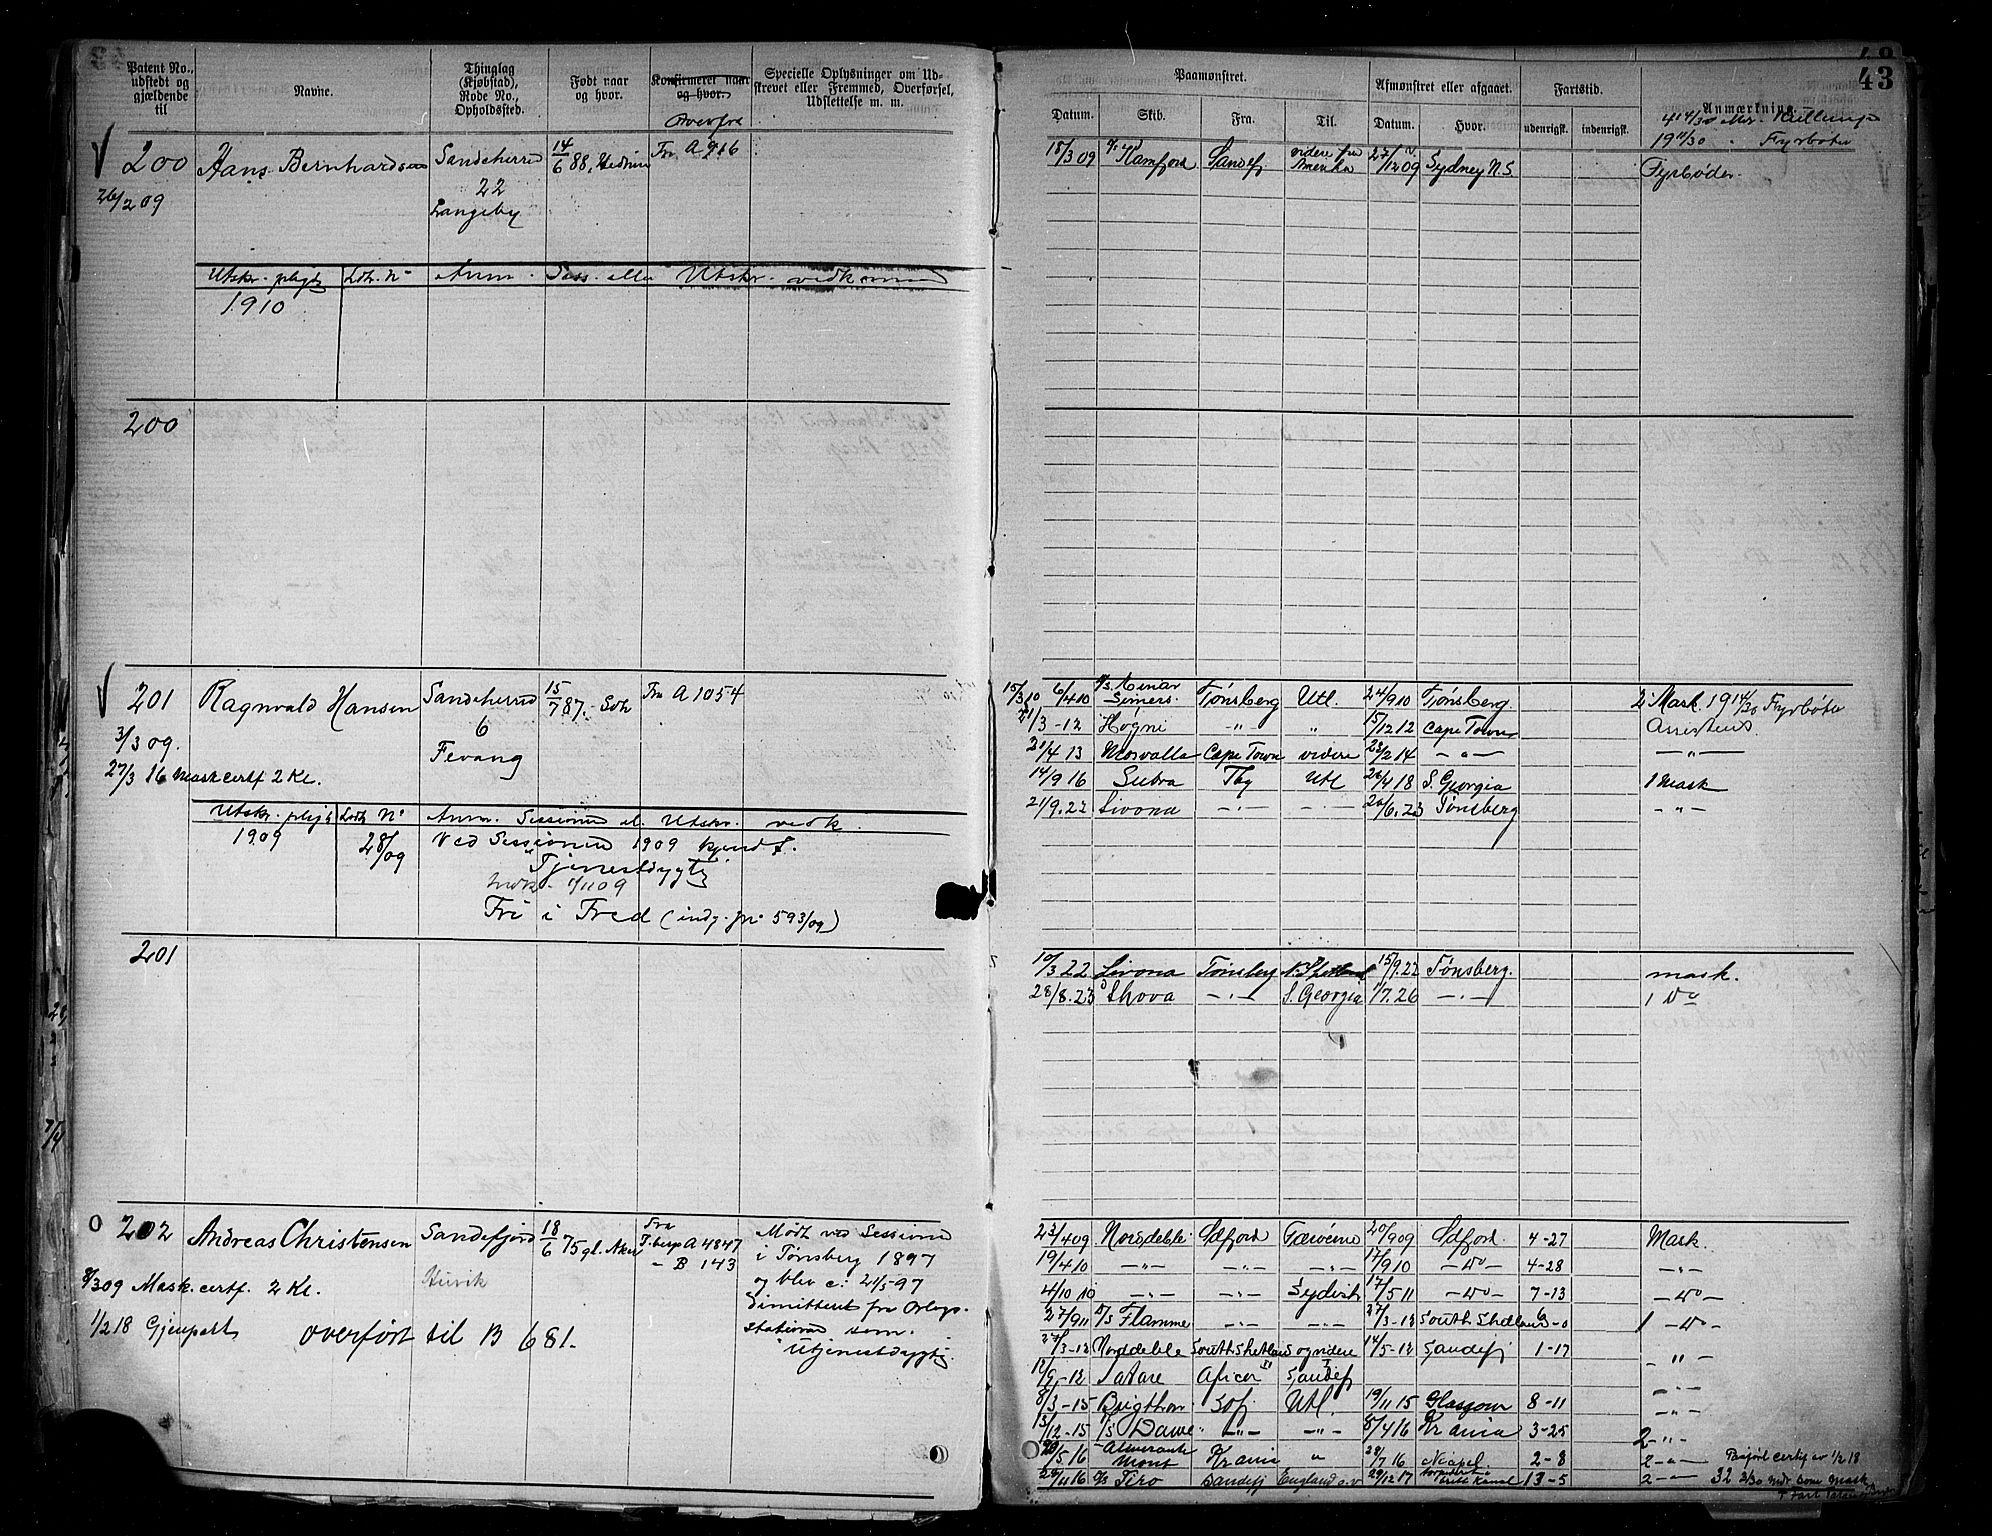 43
Patent No., udstedt og gjældende til
Navne.
Thinglag (Kjøbstad), Rode No., Opholdssted.
Født naar og hvor.
Konfirmeret naar og hvor.
Overført
Specielle Oplysninger om Udskrevet eller Fremmed, Overførsel, Udslettelse m. m.
Paamønstret.
Afmønstret eller afgaaet.
Fartstid.
Anmærkning.
Datum.
Skib.
Fra.
Til.
Datum.
Hvor.
udenrigsk.
indenrigsk.
200 Hans Bernhardsen Sandeherred 14/6 88, Hedrum Fra A 916
26/2 09
22
Langeby
15/3 09 Kamfjord Sandefj videre fra Amerika 27/12 09 Sydney N.S. Fyrbøder.
Utskr. pligt Lodtr. No Anm. Sess. eller Utskr. vedkommende
1910
200
201 Ragnvald Hansen Sandeherred 15/7 87. Sdh Fra A 1054
3/3 09.
6
Fevang
27/3 16 Mask certf 2 Kl.
15/3 10 6/4 10 Einar Simers. Tønsberg Utl. 24/9 10 Tønsberg. 2 Mask. 19 14/30 Fyrbøter
21/3-12 Høgni -"- " 15/12 12 Cape Town Assistent.
21/4 13 Mosvalla Cape Town videre 23/2 14 -"- -"-
14/9 16 Sutra Tbg Utl 26/4 18 S. Georgia 1 Mask
21/9.22 Livona -"- -"- 20/6.23 Tønsberg -"-
Utskr. pligt Lodtr No Anm. Sessionen el. Utskr. vedk.
1909 28/09 Ved Sessionen 1909 kjendt
Tjenestdygtig
11/11 09
Fri i Fred (indg. jnr 593/09)
201
10/3 22 Livona Tønsberg N. Shetland 15/9.22 Tønsberg. mask.
28/8.23 Skova -"- S. Georgia 1/7.26 -"- 1 Do
202 Andreas Christensen Sandefjord 18/6 75 gl. Aker Fra T.berg A 4847
- B 143
Huvik
8/3 09 Mask. certf. 2 Kl.
1/2 18 Gjenpart overført til B 681.
Mødt ved Sessionen
i Tønsberg 1897
og blev d: 21/5-97
Dimitteret fra Orlogs-
stationen som
"Utjenestdygtig.
23/4 09 Nordeble Sdfjord Færøerne 20/9 09 Sdfjord. 4-27 Mask.
19/4 10 -"- -"- -"- 17/9 10 -do- 4-28 -"-
4/10 10 -"- -"- Sydish 17/5 11 -do- 7-13 -do-
27/9 11 D/S Flamme -"- -"- 27/3-12 South Shetland 6-0 1 -do-
27/3-12 Nordeble South Shetland og videre 14/5-12 Sandefj 1-17 -"-
12/9-12 Tatare Africa Sandefj -"-
8/3-15 Brigthon Sdfj Utl. 19/11 15 Glasgow 8-11 -"-
13/12-15 D/S Dawe -"- -"- 8/4 16 Kr ania 3-25 2 -"-
Almirante Mont Kr ania " 28/7 16 Neapel. 2-8 2 -"- Paaført certf av 1/2 18
29/11 16 D/S Tiro Sandefj England o.v 29/12 17 torpedert eng. Kanal 13-5 2 -"- 32 2/30 mdr som mask